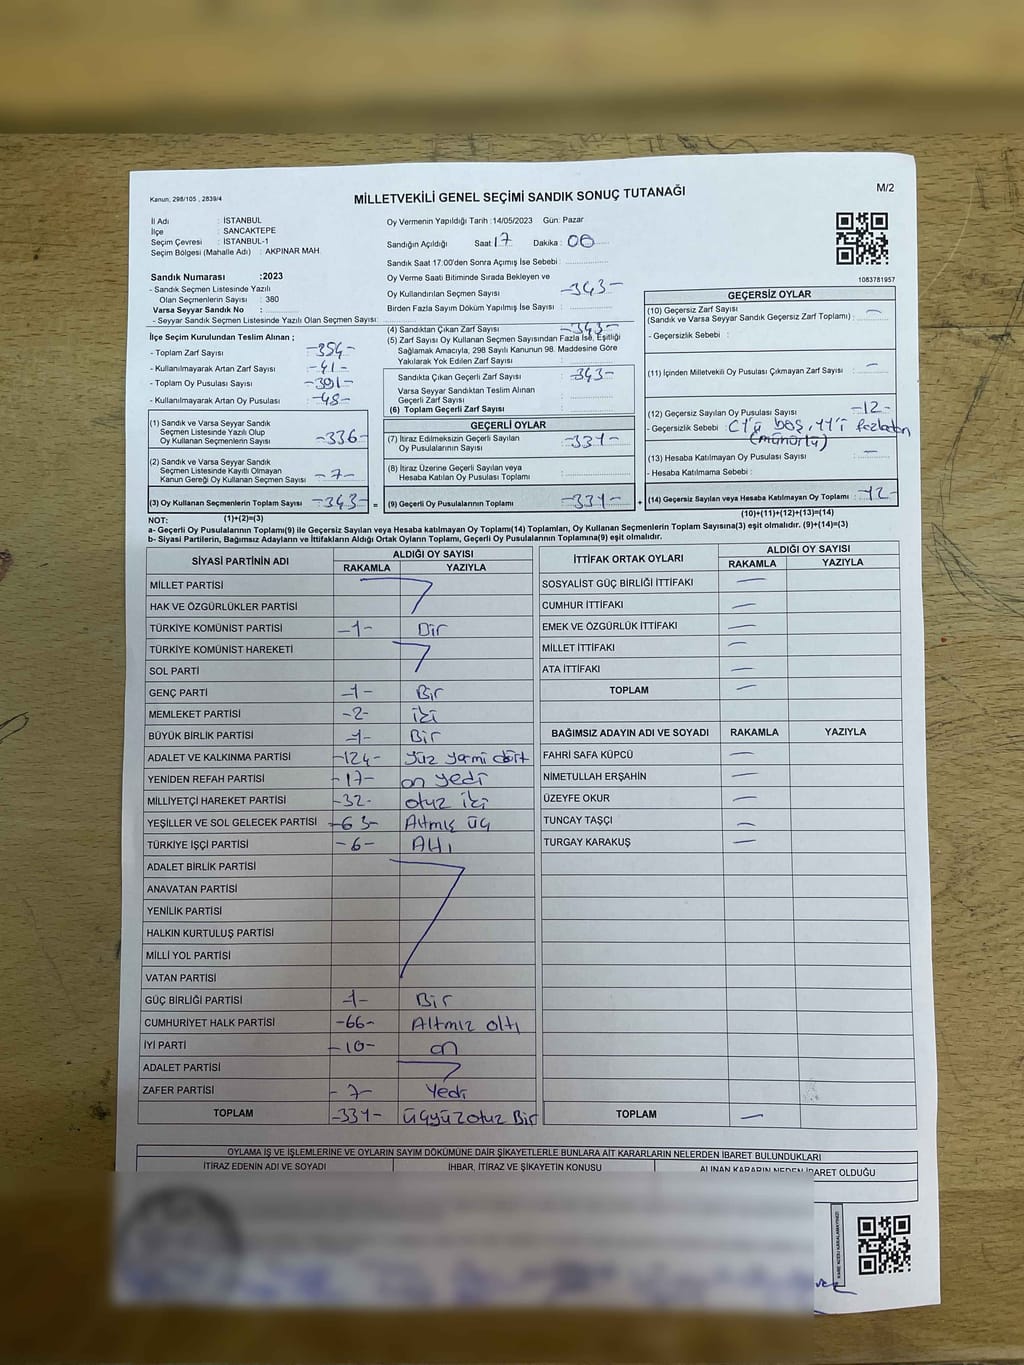 Kanun; 298/105 , 2839/4
MİLLETVEKİLİ GENEL SEÇİMİ SANDIK SONUÇ TUTANAĞI
M/2
İl Adı : İSTANBUL
İlçe : SANCAKTEPE
Seçim Çevresi : İSTANBUL-1
Seçim Bölgesi (Mahalle Adı) : AKPINAR MAH.
Sandık Numarası :2023
- Sandık Seçmen Listesinde Yazılı
Olan Seçmenlerin Sayısı : 380
Varsa Seyyar Sandık No :
- Seyyar Sandık Seçmen Listesinde Yazılı Olan Seçmen Sayısı:
Oy Vermenin Yapıldığı Tarih :14/05/2023 Gün: Pazar
Sandığın Açıldığı Saat 17 Dakika : 00
Sandık Saat 17:00'den Sonra Açılmış İse Sebebi :
Oy Verme Saati Bitiminde Sırada Bekleyen ve
Oy Kullandırılan Seçmen Sayısı : -343-
Birden Fazla Sayım Döküm Yapılmış İse Sayısı :
1083781957
İlçe Seçim Kurulundan Teslim Alınan ;
- Toplam Zarf Sayısı : -354-
- Kullanılmayarak Artan Zarf Sayısı : -41-
- Toplam Oy Pusulası Sayısı : -391-
- Kullanılmayarak Artan Oy Pusulası : -48-
(1) Sandık ve Varsa Seyyar Sandık
Seçmen Listesinde Yazılı Olup
Oy Kullanan Seçmenlerin Sayısı : -336-
(2) Sandık ve Varsa Seyyar Sandık
Seçmen Listesinde Kayıtlı Olmayan
Kanun Gereği Oy Kullanan Seçmen Sayısı : -7-
(3) Oy Kullanan Seçmenlerin Toplam Sayısı : -343-
(1)+(2)=(3)
(4) Sandıktan Çıkan Zarf Sayısı : -343-
(5) Zarf Sayısı Oy Kullanan Seçmen Sayısından Fazla İse, Eşitliği
Sağlamak Amacıyla, 298 Sayılı Kanunun 98. Maddesine Göre
Yakılarak Yok Edilen Zarf Sayısı :
Sandıkta Çıkan Geçerli Zarf Sayısı : -343-
Varsa Seyyar Sandıktan Teslim Alınan
Geçerli Zarf Sayısı :
(6) Toplam Geçerli Zarf Sayısı :
GEÇERLİ OYLAR
(7) İtiraz Edilmeksizin Geçerli Sayılan
Oy Pusulasının Sayısı : -331-
(8) İtiraz Üzerine Geçerli Sayılan veya
Hesaba Katılan Oy Pusulası Toplamı :
= (9) Geçerli Oy Pusulalarının Toplamı : -331-
GEÇERSİZ OYLAR
(10) Geçersiz Zarf Sayısı
(Sandık ve Varsa Seyyar Sandık Geçersiz Zarf Toplamı) : —
- Geçersizlik Sebebi :
(11) İçinden Milletvekili Oy Pusulası Çıkmayan Zarf Sayısı : —
(12) Geçersiz Sayılan Oy Pusulası Sayısı : -12-
- Geçersizlik Sebebi : (1'i boş, 11'i fazladan
(mühürlü)
(13) Hesaba Katılmayan Oy Pusulası Sayısı : —
- Hesaba Katılmama Sebebi :
+ (14) Geçersiz Sayılan veya Hesaba Katılmayan Oy Toplamı : -12-
(10)+(11)+(12)+(13)=(14)
NOT:
a- Geçerli Oy Pusulalarının Toplamı(9) ile Geçersiz Sayılan veya Hesaba katılmayan Oy Toplamı(14) Toplamları, Oy Kullanan Seçmenlerin Toplam Sayısına(3) eşit olmalıdır. (9)+(14)=(3)
b- Siyasi Partilerin, Bağımsız Adayların ve İttifakların Aldığı Ortak Oyların Toplamı, Geçerli Oy Pusulalarının Toplamına(9) eşit olmalıdır.
SİYASİ PARTİNİN ADI ALDIĞI OY SAYISI
RAKAMLA YAZIYLA
MİLLET PARTİSİ
HAK VE ÖZGÜRLÜKLER PARTİSİ
TÜRKİYE KOMÜNİST PARTİSİ -1- Bir
TÜRKİYE KOMÜNİST HAREKETİ
SOL PARTİ
GENÇ PARTİ -1- Bir
MEMLEKET PARTİSİ -2- iki
BÜYÜK BİRLİK PARTİSİ -1- Bir
ADALET VE KALKINMA PARTİSİ -124- Yüz yirmi dört
YENİDEN REFAH PARTİSİ -17- on yedi
MİLLİYETÇİ HAREKET PARTİSİ -32- otuz iki
YEŞİLLER VE SOL GELECEK PARTİSİ -63- Altmış üç
TÜRKİYE İŞÇİ PARTİSİ -6- Altı
ADALET BİRLİK PARTİSİ
ANAVATAN PARTİSİ
YENİLİK PARTİSİ
HALKIN KURTULUŞ PARTİSİ
MİLLİ YOL PARTİSİ
VATAN PARTİSİ
GÜÇ BİRLİĞİ PARTİSİ -1- Bir
CUMHURİYET HALK PARTİSİ -66- Altmış altı
İYİ PARTİ -10- on
ADALET PARTİSİ
ZAFER PARTİSİ -7- Yedi
TOPLAM -331- üçyüz otuz Bir
İTTİFAK ORTAK OYLARI ALDIĞI OY SAYISI
RAKAMLA YAZIYLA
SOSYALİST GÜÇ BİRLİĞİ İTTİFAKI —
CUMHUR İTTİFAKI —
EMEK VE ÖZGÜRLÜK İTTİFAKI —
MİLLET İTTİFAKI —
ATA İTTİFAKI —
TOPLAM —
BAĞIMSIZ ADAYIN ADI VE SOYADI RAKAMLA YAZIYLA
FAHRİ SAFA KÜPCÜ —
NİMETULLAH ERŞAHİN —
ÜZEYFE OKUR —
TUNCAY TAŞÇI —
TURGAY KARAKUŞ —
TOPLAM —
OYLAMA İŞ VE İŞLEMLERİNE VE OYLARIN SAYIM DÖKÜMÜNE DAİR ŞİKAYETLERLE BUNLARA AİT KARARLARIN NELERDEN İBARET BULUNDUKLARI
İTİRAZ EDENİN ADI VE SOYADI İHBAR, İTİRAZ VE ŞİKAYETİN KONUSU ALINAN KARARIN NEDEN İBARET OLDUĞU